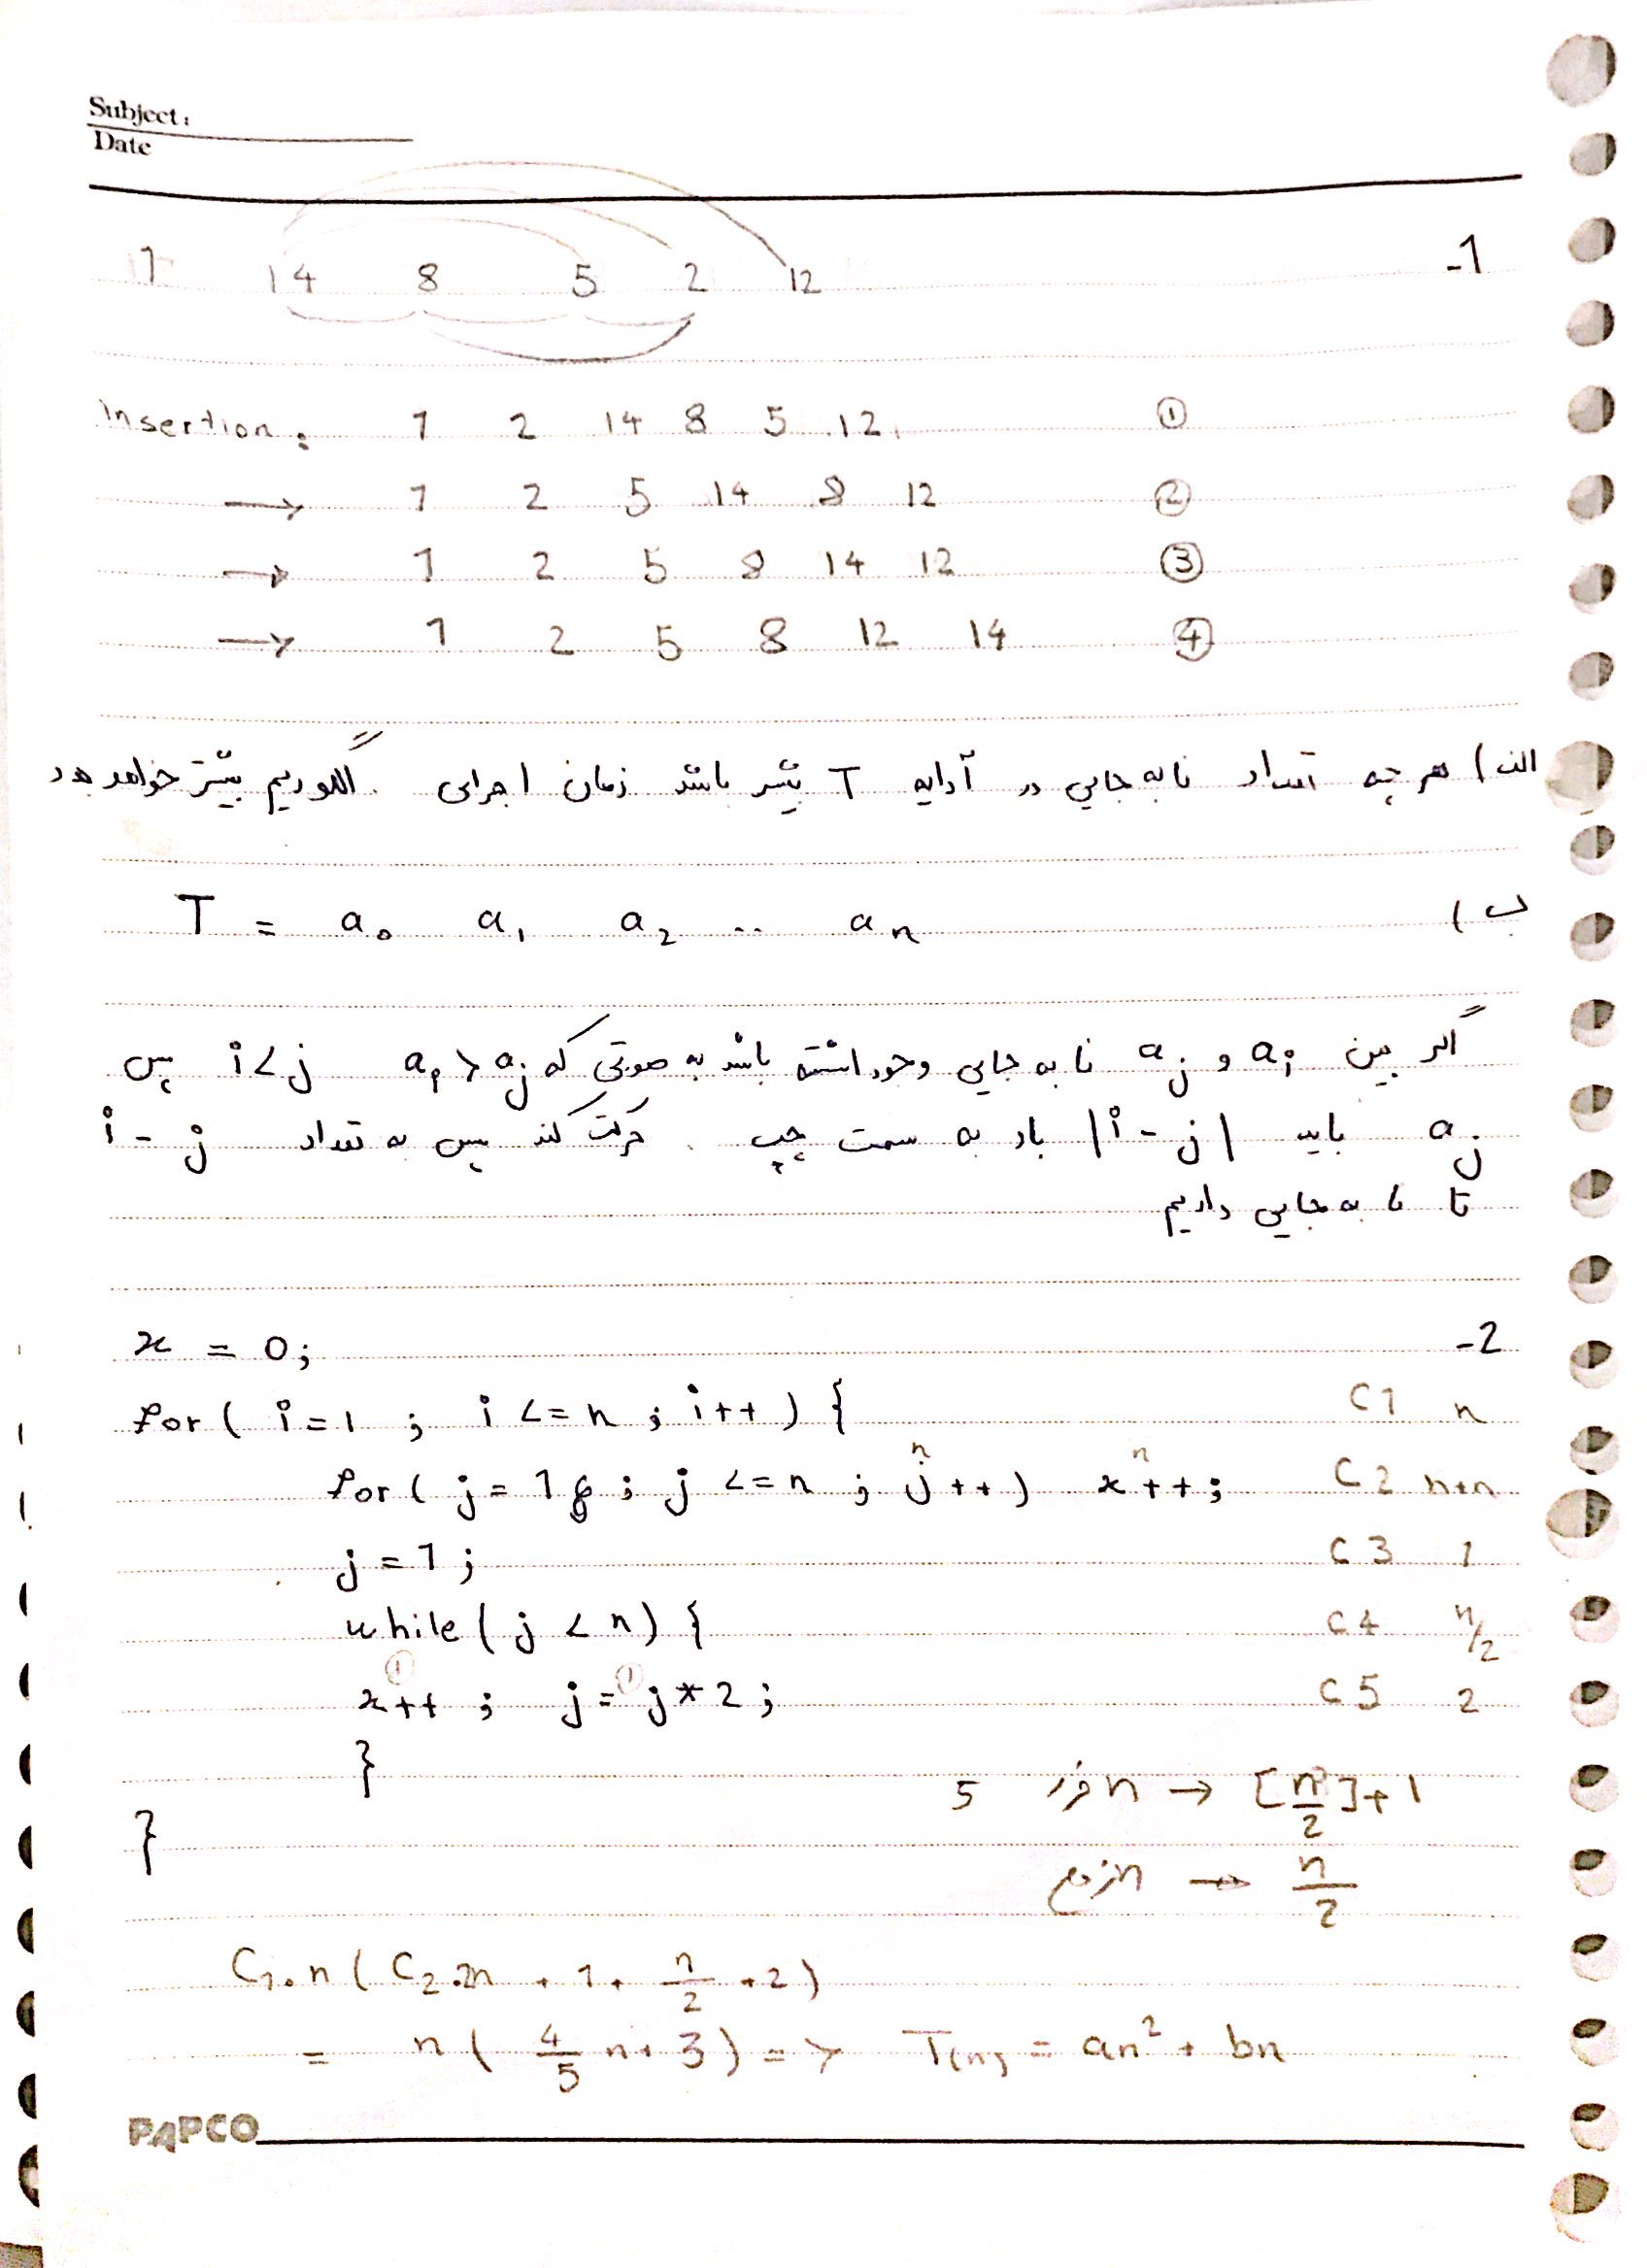 Subject:
Date
-1
1 14 8 5 2 12
Insertion: 1 2 14 8 5 12 ①
→ 1 2 5 14 8 12 ②
→ 1 2 5 8 14 12 ③
→ 1 2 5 8 12 14 ④
الف) هر چه تعداد نابه جایی در آرایه T بیشتر باشد زمان اجرای الگوریم بیشتر خواهد بود
ب)
T = a₀ a₁ a₂ .. aₙ
اگر بین aᵢ و aⱼ نا به جایی وجود داشته باشد به صورتی که aᵢ > aⱼ i<j پس
aⱼ باید |i-j| بار به سمت چپ حرکت کند پس به تعداد i-j
تا نا به جایی داریم
-2
x = 0;
for( i=1 ; i <= n ; i++ ) { C1 n
for( j=1 ; j <= n ; j++) x++; C2 n+n
n n
j=1; C3 1
while( j < n) { C4 n/2
x++ ; j = j*2 ; C5 2
① ①
}
5 n فرد → [n/2]+1
}
n زوج → n/2
C₁.n ( C₂.2n + 1 + n/2 + 2 )
= n ( 4/5 n + 3 ) => T(n) = an² + bn
PAPCO